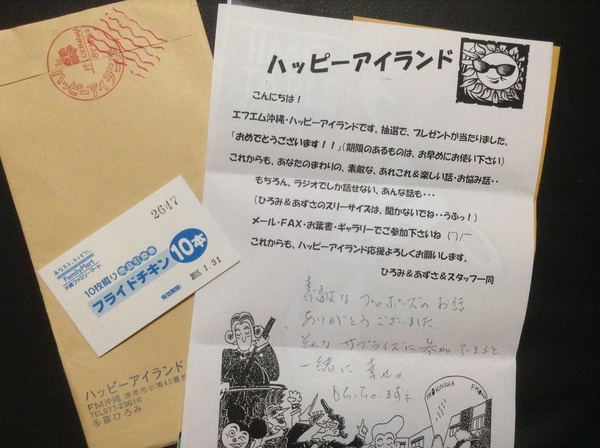 ハッピーアイランド
こんにちは！
エフエム沖縄・ハッピーアイランドです。抽選で、プレゼントが当たりました。
「おめでとうございます！！」(期限のあるものは、お早めにお使い下さい)
これからも、あなたのまわりの、素敵な、あれこれ＆楽しい話・お悩み話・・
もちろん、ラジオでしか話せない、あんな話も・・・
(ひろみ＆あずさのスリーサイズは、聞かないでね・・うふっ！)
メール・FAX・お葉書・ギャラリーでご参加下さいね (^)/~~
これからも、ハッピーアイランド応援よろしくお願いします。
ひろみ＆あずさ＆スタッフ一同
素敵なプロポーズのお話
ありがとうございました
そんなサプライズに参加できると
一緒に幸せ。
もらっちゃいますね
ハッピーアイランド
2647
あなたと、コンビに、
FamilyMart
沖縄ファミリーマート
10枚綴り 商品引換券
フライドチキン 10本
有効期限 2015.1.31
ハッピーアイランド
FM沖縄 浦添市小湾40番地
TEL877-2361
多喜ひろみ
OKINAWA FM